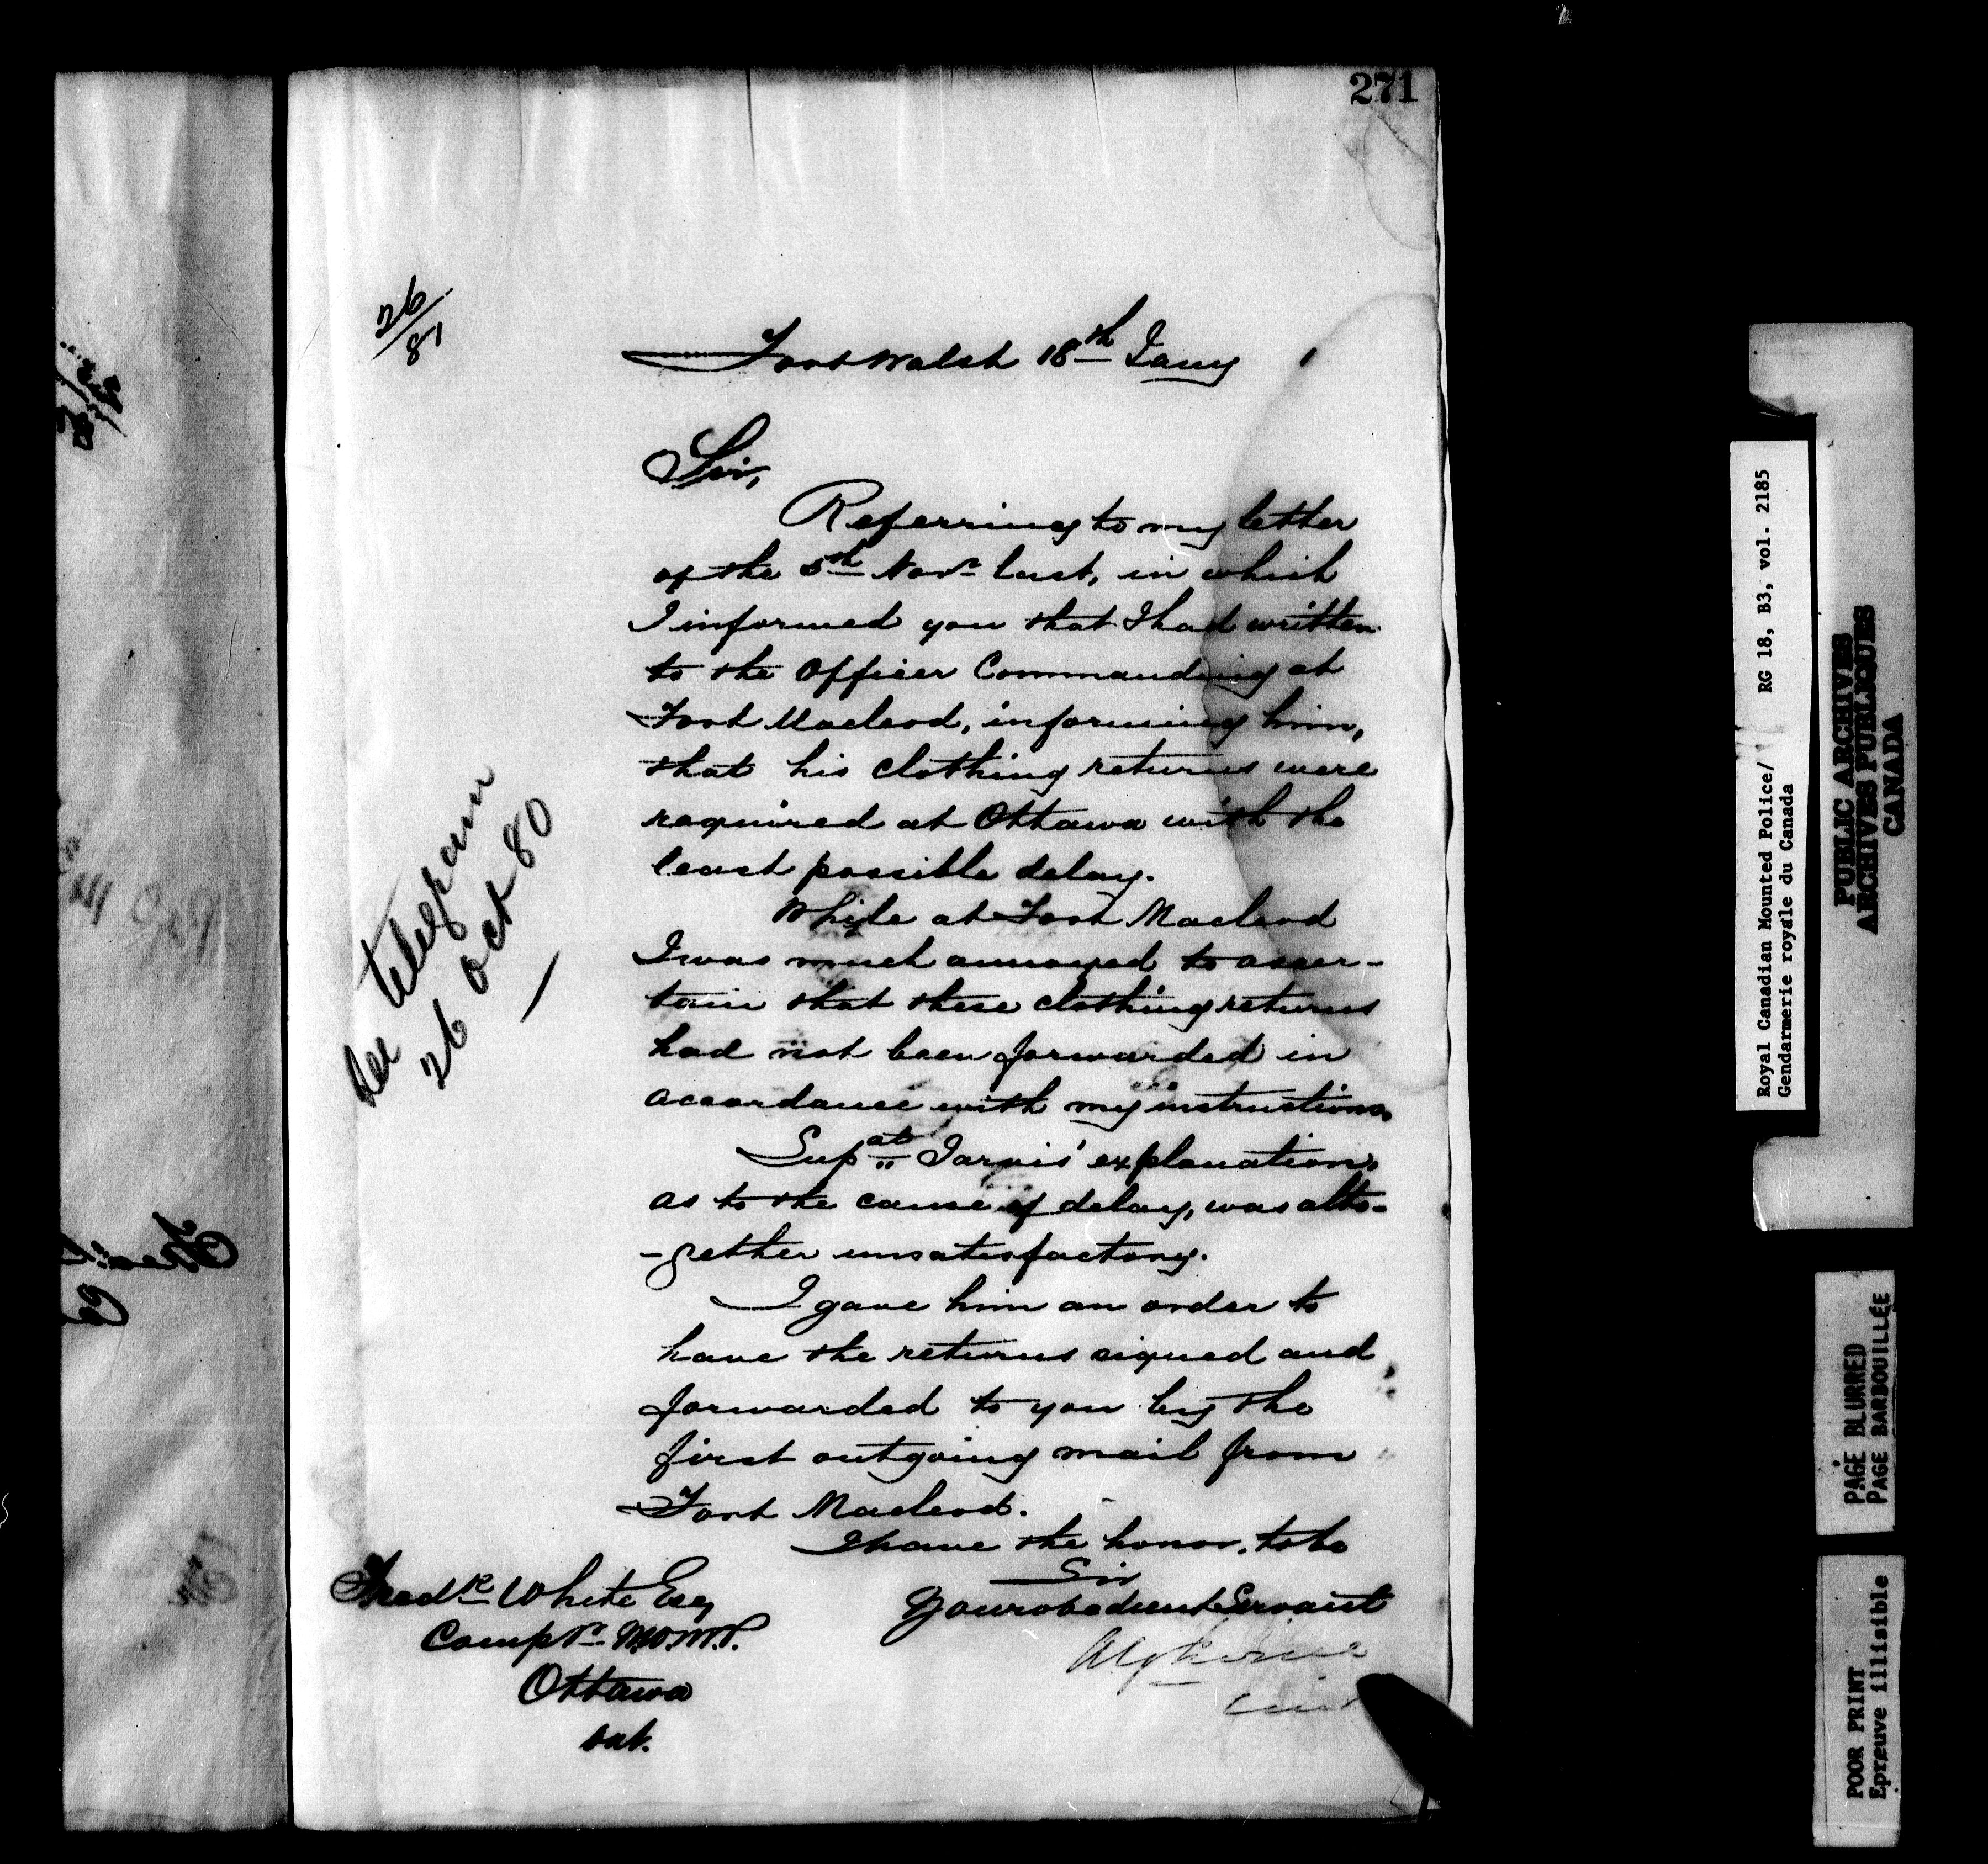 271
26/81
Fort Walsh 18th Jany
Sir,
Referring to my letter
of the 5th Novr last, in which
I informed you that I had written
to the Officer Commanding at
Fort Macleod, informing him,
that his clothing returns were
required at Ottawa with the
least possible delay.
While at Fort Macleod
I was much annoyed to ascer-
tain that these clothing returns
had not been forwarded in
accordance with my instructions.
Supdt Jarvis' explanation,
as to the cause of delay, was alto-
-gether unsatisfactory.
I gave him an order to
have the returns signed and
forwarded to you by the
first outgoing mail from
Fort Macleod.
I have the honor, to be
Sir
Your obedient Servant
Fredk White Esq
Compr N.W.M.P.
Ottawa
Ont.
telegram
26 Oct 80
Royal Canadian Mounted Police/ RG 18, B3, vol. 2185
Gendarmerie royale du Canada
PUBLIC ARCHIVES
ARCHIVES PUBLIQUES
CANADA
PAGE BLURRED
PAGE BARBOUILLÉE
POOR PRINT
Epreuve illisible